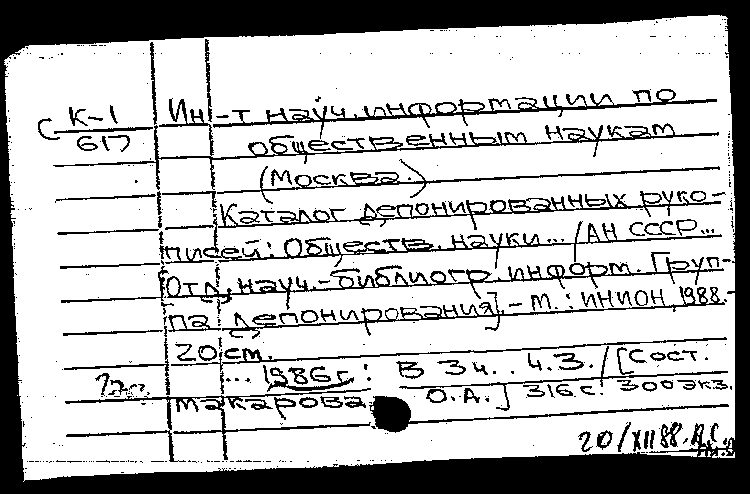 С К-1 Ин-т науч. информации по
617 общественным наукам
(Москва.)
Каталог депонированных руко-
писей: Обществ. науки... /АН СССР...
[Отд. науч.-библиогр. информ. Груп-
па депонирования]. - М.: ИНИОН, 1988.-
20 см.
... 1986 г: В 3 ч. . Ч.3. /[Сост.
Макарова О.А.] 316 с. 300 экз.
20/XII 88.